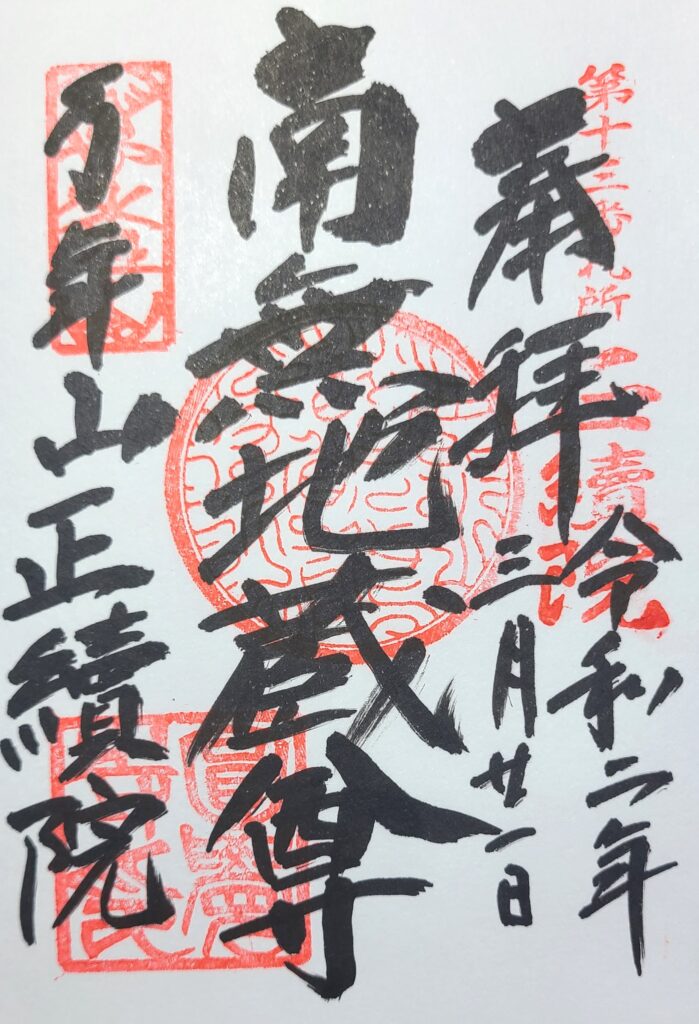 第十三番札所 正續院
奉拝 令和二年
三月廿一日
南無地蔵尊
万年山正續院